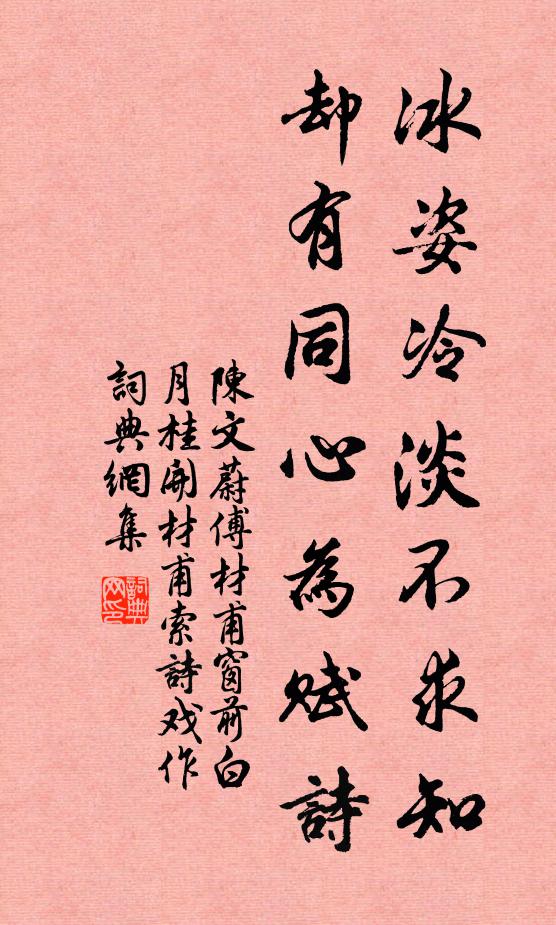 冰姿冷淡不求知
却有同心為賦詩
陳文蔚傅材甫窗前白
月桂開材甫索詩戏作
詞典網集
詞典網印